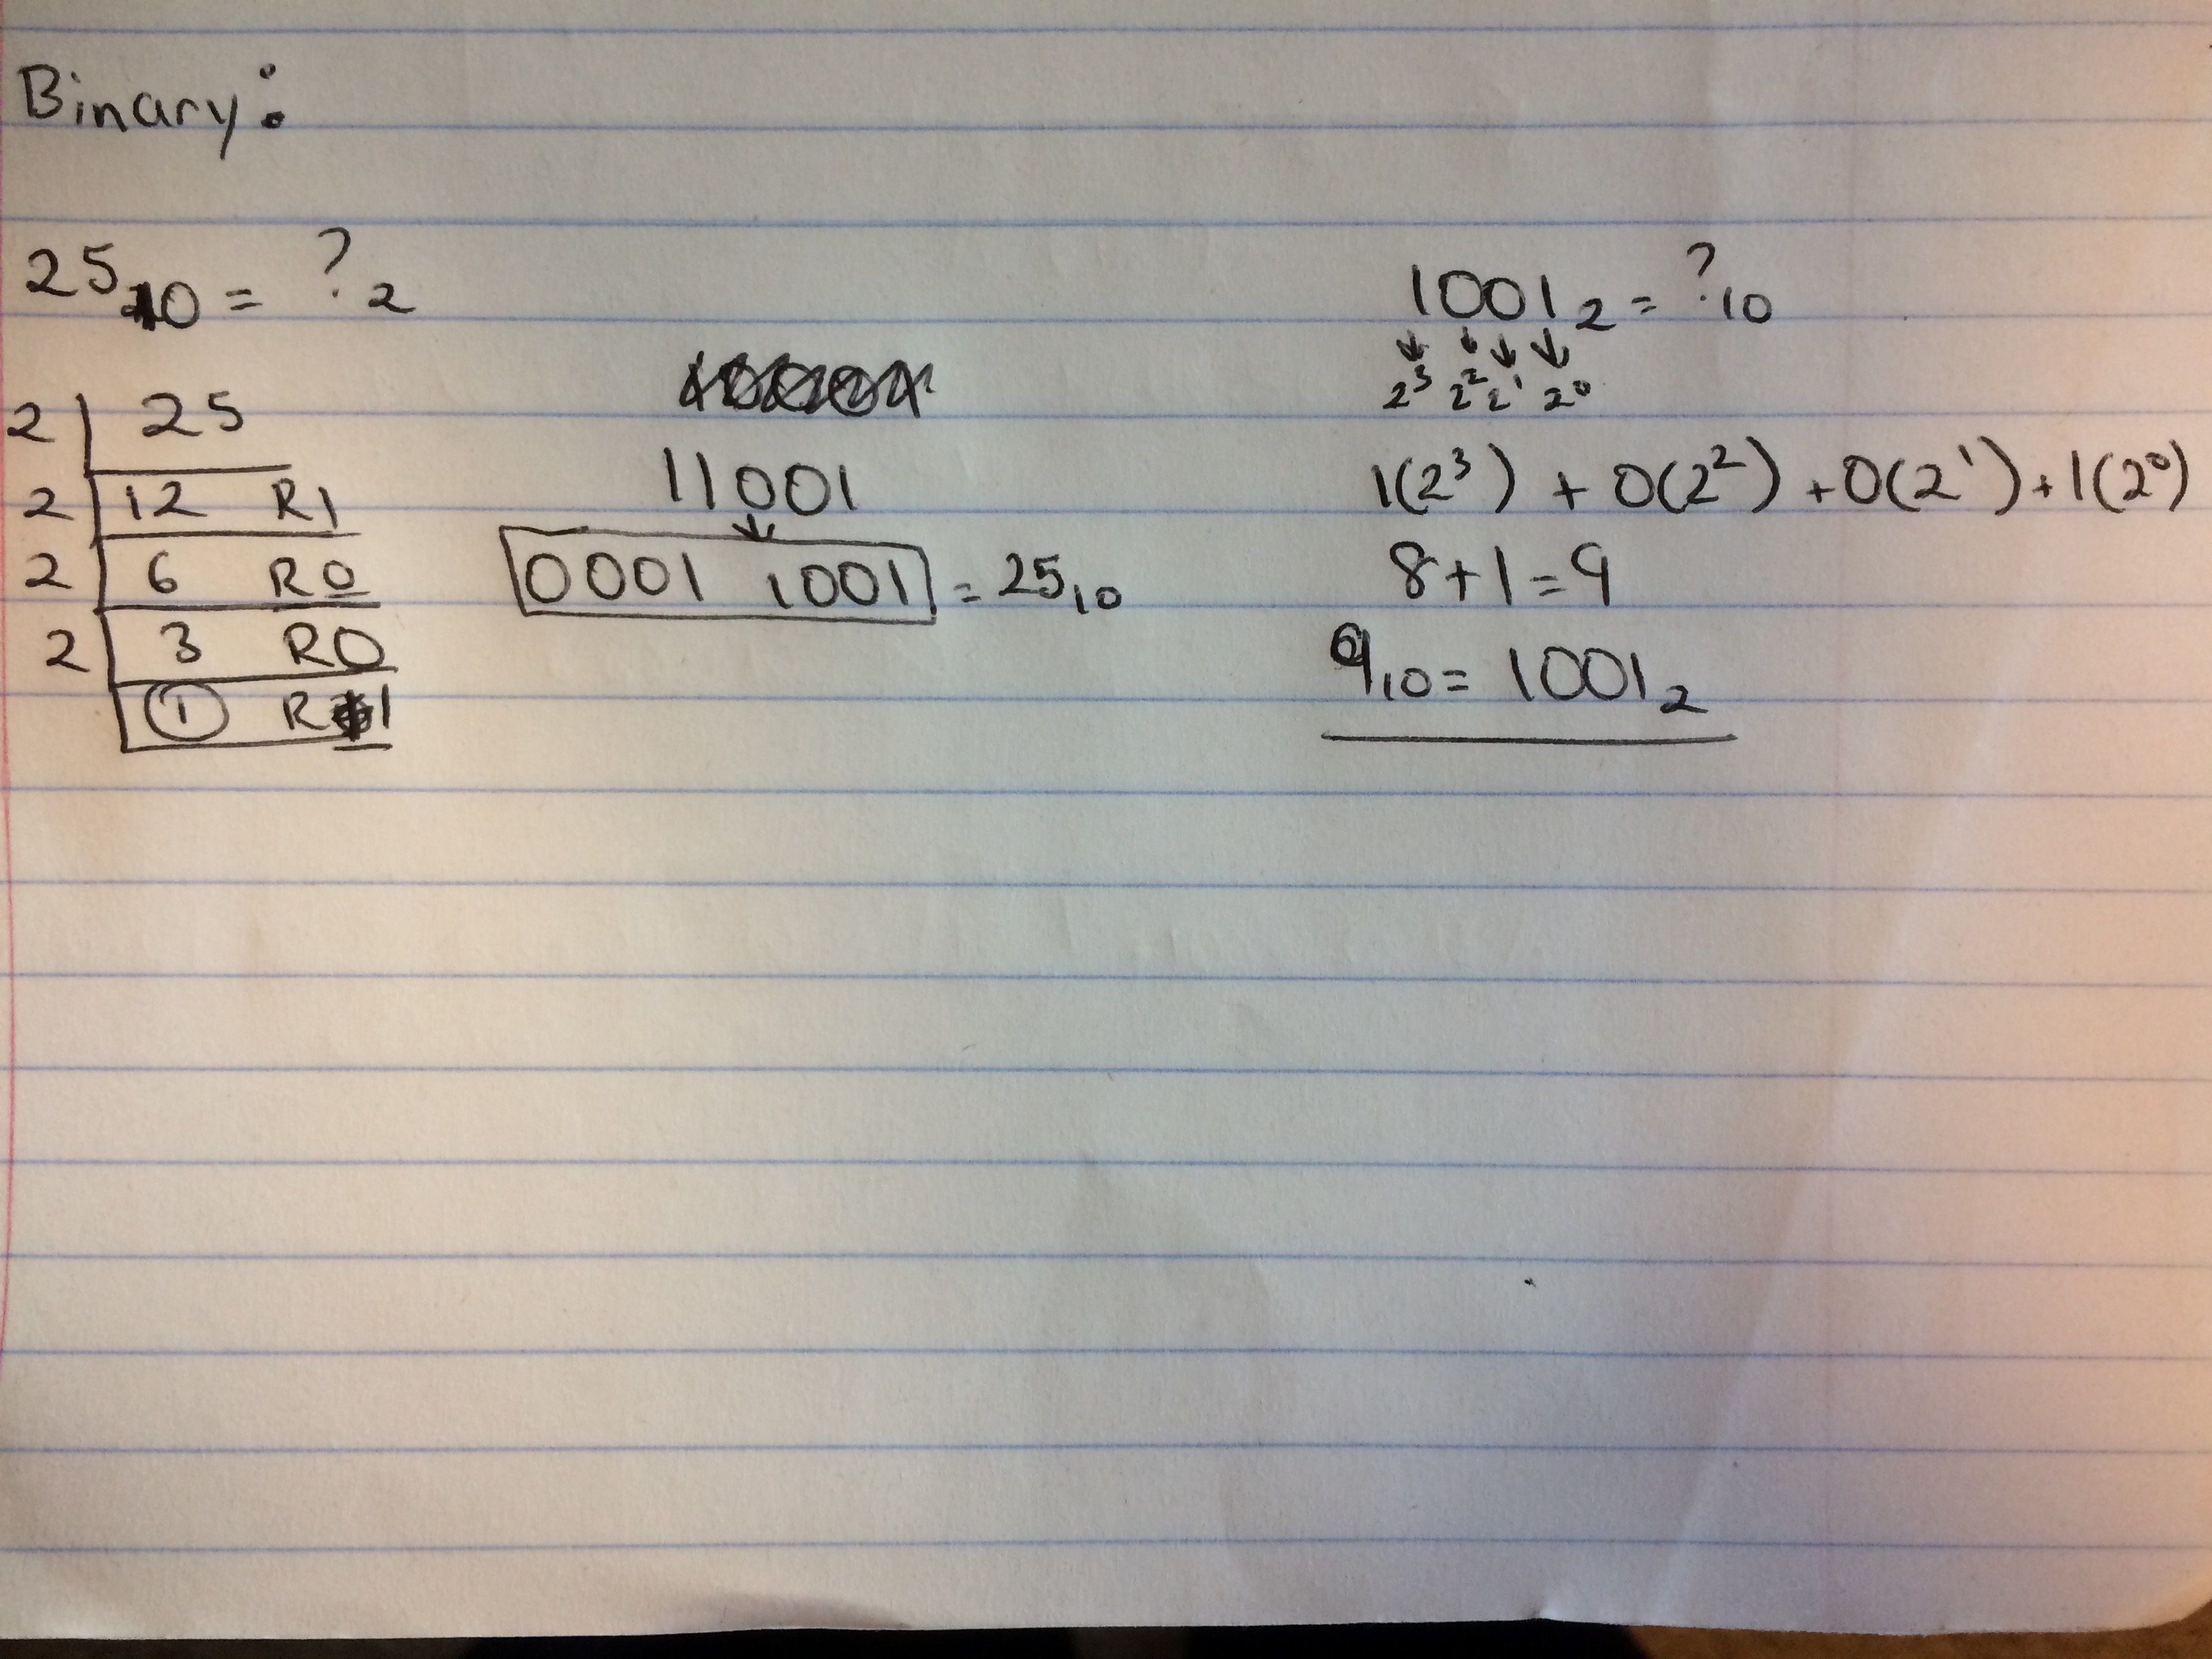 Binary:
25₁₀ = ?₂
2 | 25
2 | 12 R1
2 | 6 R0
2 | 3 R0
1 R1
11001
↓
0001 1001 = 25₁₀
1001₂ = ?₁₀
↓ ↓ ↓ ↓
2³ 2² 2¹ 2⁰
1(2³) + 0(2²) + 0(2¹) + 1(2⁰)
8+1=9
9₁₀ = 1001₂